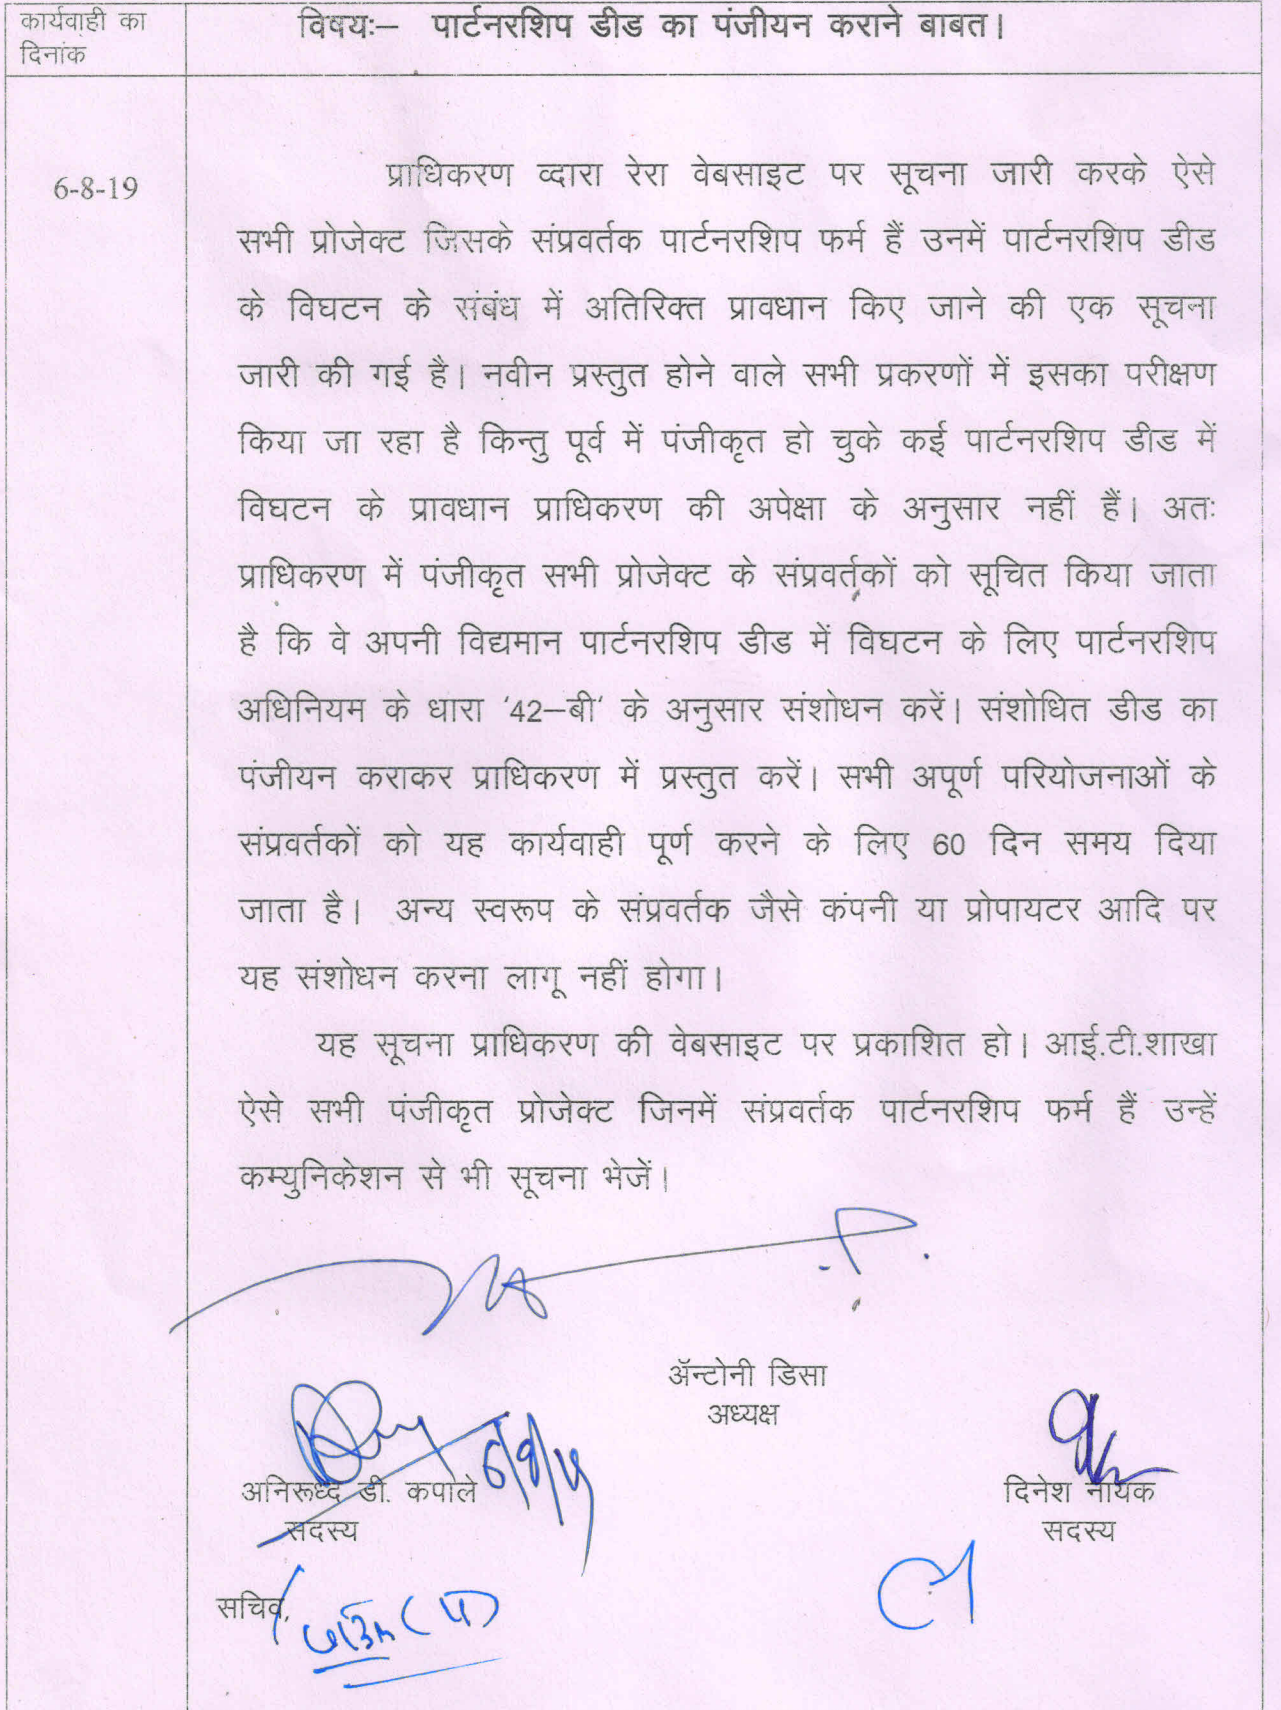 कार्यवाही का
दिनांक
विषयः– पार्टनरशिप डीड का पंजीयन कराने बाबत।
6-8-19
प्राधिकरण व्दारा रेरा वेबसाइट पर सूचना जारी करके ऐसे
सभी प्रोजेक्ट जिसके संप्रवर्तक पार्टनरशिप फर्म हैं उनमें पार्टनरशिप डीड
के विघटन के संबंध में अतिरिक्त प्रावधान किए जाने की एक सूचना
जारी की गई है। नवीन प्रस्तुत होने वाले सभी प्रकरणों में इसका परीक्षण
किया जा रहा है किन्तु पूर्व में पंजीकृत हो चुके कई पार्टनरशिप डीड में
विघटन के प्रावधान प्राधिकरण की अपेक्षा के अनुसार नहीं हैं। अतः
प्राधिकरण में पंजीकृत सभी प्रोजेक्ट के संप्रवर्तकों को सूचित किया जाता
है कि वे अपनी विद्यमान पार्टनरशिप डीड में विघटन के लिए पार्टनरशिप
अधिनियम के धारा '42–बी' के अनुसार संशोधन करें। संशोधित डीड का
पंजीयन कराकर प्राधिकरण में प्रस्तुत करें। सभी अपूर्ण परियोजनाओं के
संप्रवर्तकों को यह कार्यवाही पूर्ण करने के लिए 60 दिन समय दिया
जाता है। अन्य स्वरूप के संप्रवर्तक जैसे कंपनी या प्रोपायटर आदि पर
यह संशोधन करना लागू नहीं होगा।
यह सूचना प्राधिकरण की वेबसाइट पर प्रकाशित हो। आई.टी.शाखा
ऐसे सभी पंजीकृत प्रोजेक्ट जिनमें संप्रवर्तक पार्टनरशिप फर्म हैं उन्हें
कम्युनिकेशन से भी सूचना भेजें।
ॲन्टोनी डिसा
अध्यक्ष
6/8/19
अनिरूध्द डी. कपाले
सदस्य
दिनेश नायक
सदस्य
सचिव,